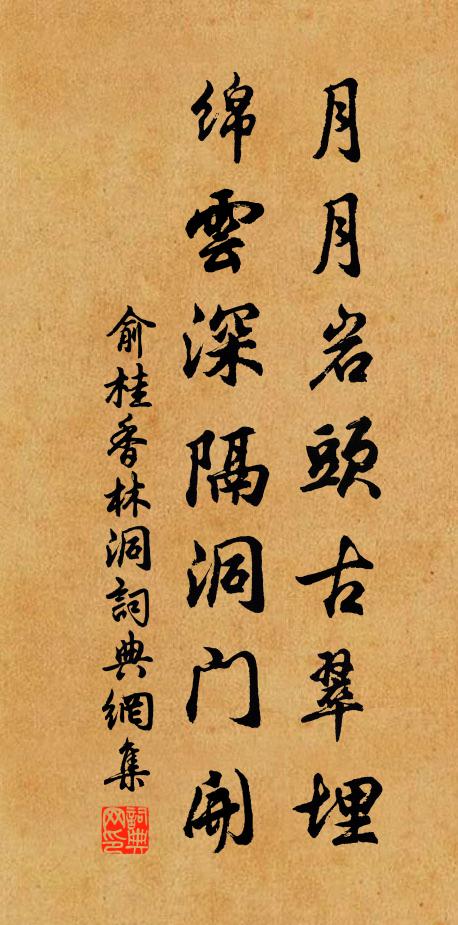 月月岩頭古翠埋
綿雲深隔洞门開
俞桂香林洞詞典網集
詞典网印